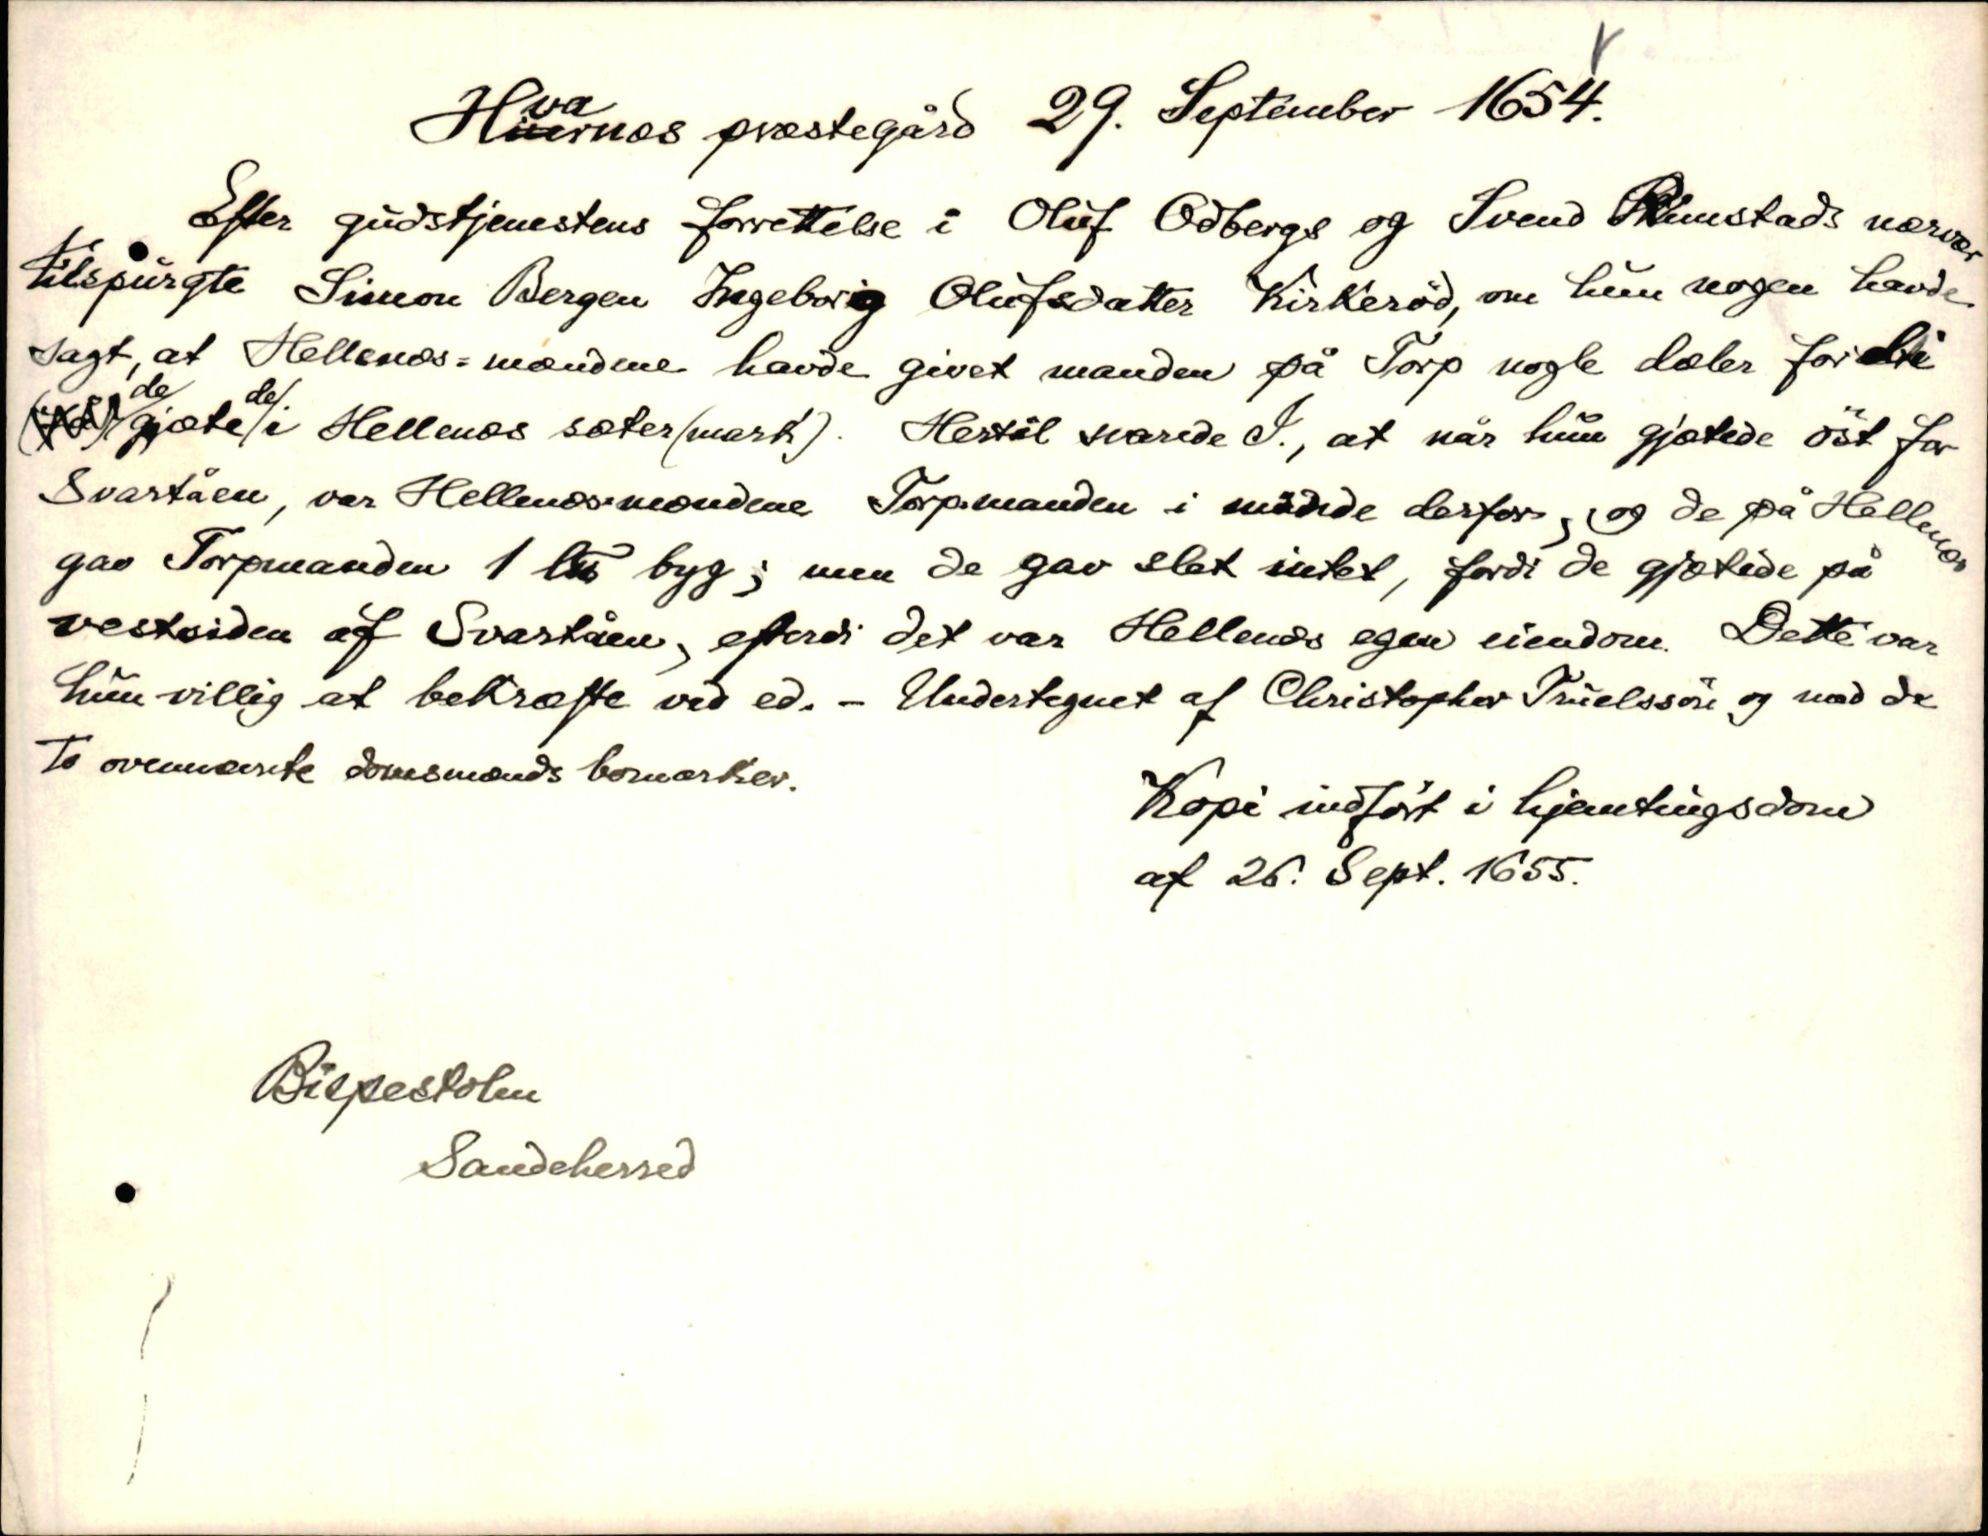 Hvarnæs præstegård 29. September 1654.
Efter gudstjenestens forrettelse i Oluf Odbergs og Svend Rimstads nærvær
tilspurgte Simon Bergen Ingeborg Olufsdatter Kirkeröd, om hun nogen havde
sagt, at Hellenæs-mændene havde givet manden på Torp nogle dæler fordi
de gjætede i Hellenæs sæter (mark). Hertil svarede I., at når hun gjætede öst for
Svartåen, var Hellenæs-mændene Torpmanden i minde derfor, og de på Hellenæs
gav Torpmanden 1 byg; men de gav slet intet, fordi de gjætede på
vestsiden af Svartåen, efterdi det var Hellenæs egen eiendom. Dette var
hun villig at bekræfte ved ed. – Undertegnet af Christopher Truelssön og med de
to ovennævnte domsmænds bomærker.
Kopi indfört i hjemtingsdom
af 26. Sept. 1655.
Bispestolen
Sandeherred